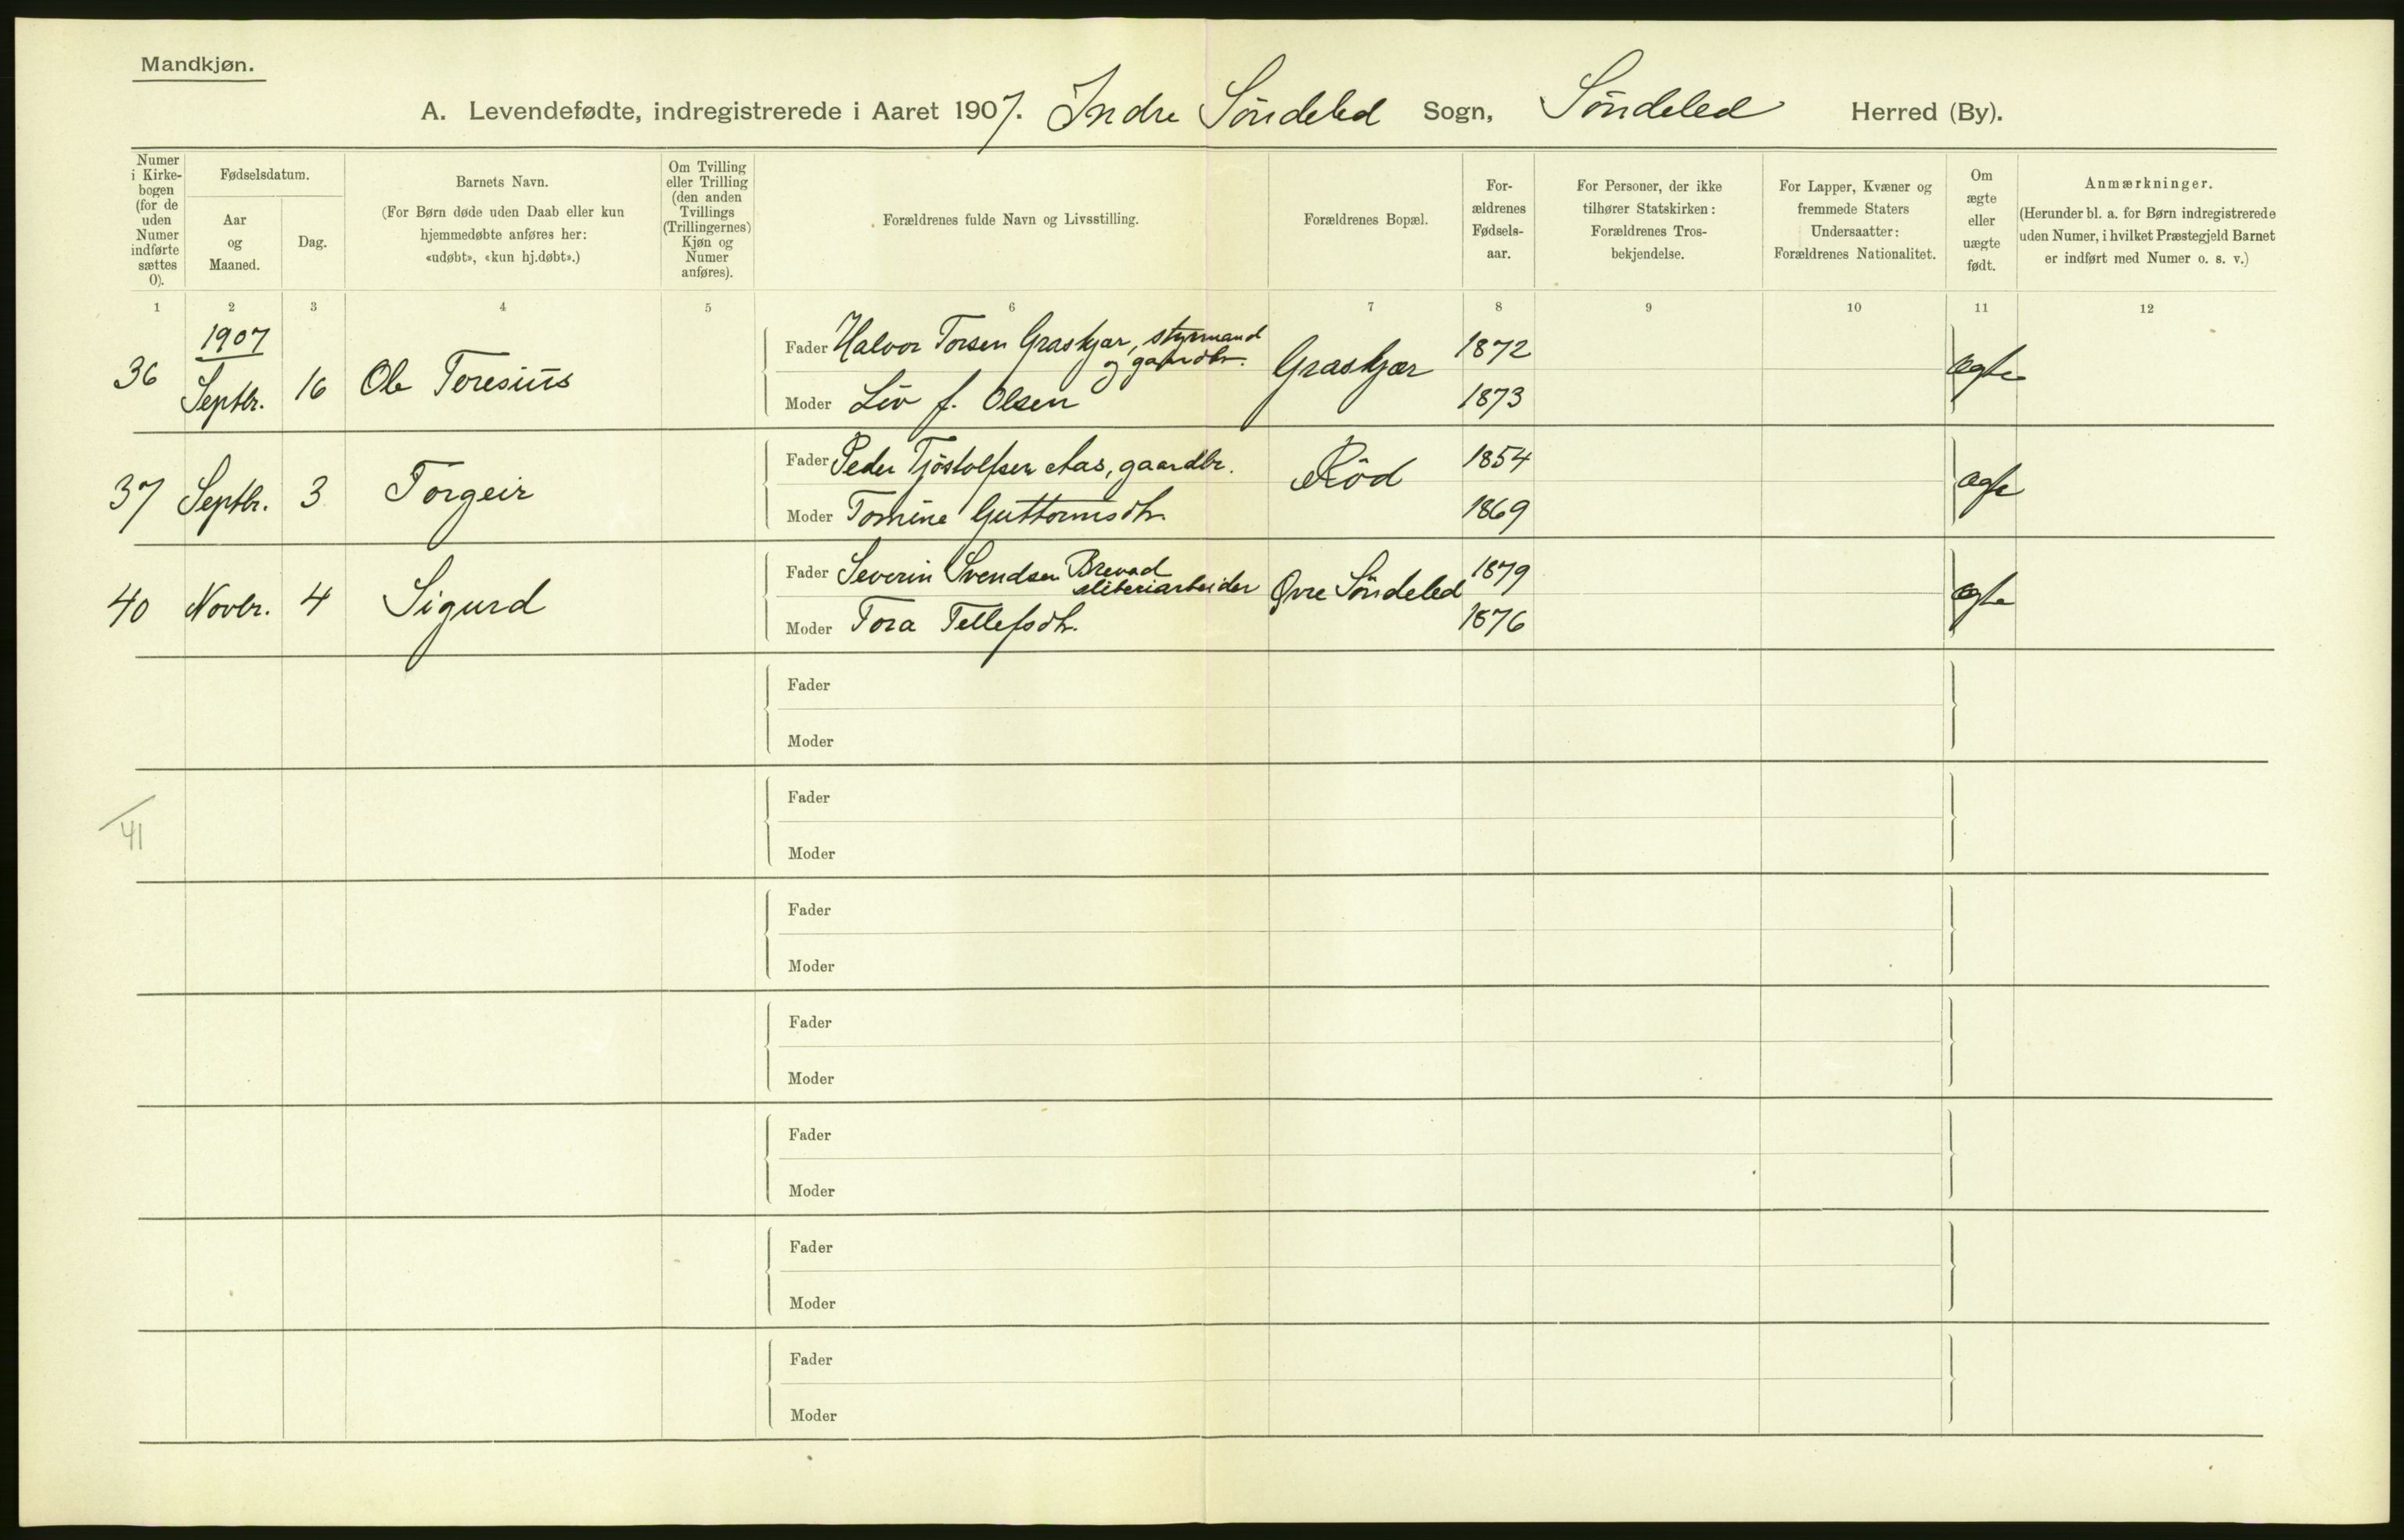 Mandkjøn.
A. Levendefødte, indregistrerede i Aaret 1907. Indre Söndeled Sogn, Söndeled Herred (By).
Numer i Kirke-bogen (for de uden Numer indførte sættes 0).
Fødselsdatum.
Aar og Maaned.
Dag.
Barnets Navn.
(For Børn døde uden Daab eller kun
hjemmedøbte anføres her:
«udøbt», «kun hj.døbt».)
Om Tvilling
eller Trilling
(den anden
Tvillings
(Trillingernes)
Kjøn og
Numer
anføres).
Forældrenes fulde Navn og Livsstilling.
Forældrenes Bopæl.
For-
ældrenes
Fødsels-
aar.
For Personer, der ikke
tilhører Statskirken:
Forældrenes Tros-
bekjendelse.
For Lapper, Kvæner og
fremmede Staters
Undersaatter:
Forældrenes Nationalitet.
Om
ægte
eller
uægte
født.
Anmærkninger.
(Herunder bl. a. for Børn indregistrerede
uden Numer, i hvilket Præstegjeld Barnet
er indført med Numer o. s. v.)
1 2 3 4 5 6 7 8 9 10 11 12
1907
36 Septbr. 16 Ole Toresius
Fader Halvor Torsen Graskjær, styrmand
og gaardbr. Graskjær 1872 ægte
Moder Liv f. Olsen 1873
37 Septbr. 3 Torgeir
Fader Peder Tjöstolfsen Aas, gaardbr. Röd 1854 ægte
Moder Tomine Guttormsdtr. 1869
40 Novbr. 4 Sigurd
Fader Severin Svendsen Brevad
sliberiarbeider Øvre Söndeled 1879 ægte
Moder Tora Tellefsdtr. 1876
Fader
Moder
41
Fader
Moder
Fader
Moder
Fader
Moder
Fader
Moder
Fader
Moder
Fader
Moder